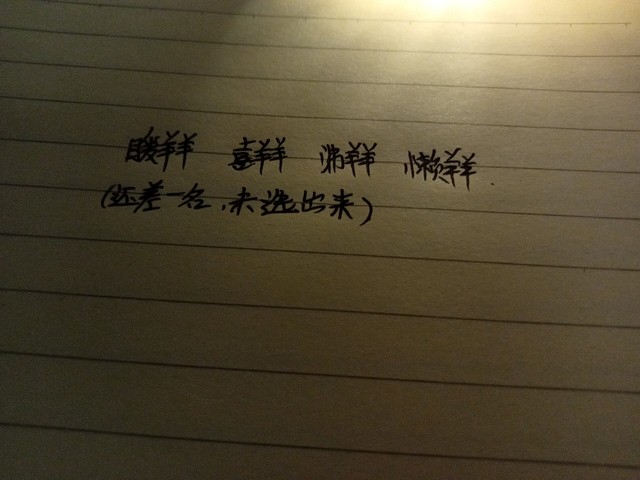 暖羊羊 喜羊羊 沸羊羊 懒羊羊.
(还差一名,未选出来)